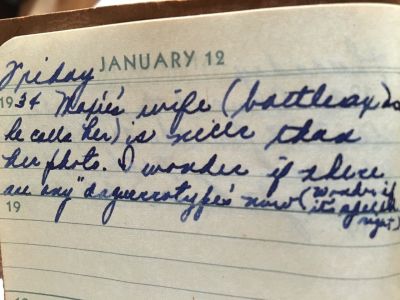 Friday JANUARY 12
1934 Mopie's wife (battleax as
he calls her) is nicer than
her photo. I wonder if there
are any "daguerrotype's now (wonder if
it's spelled
right)
19